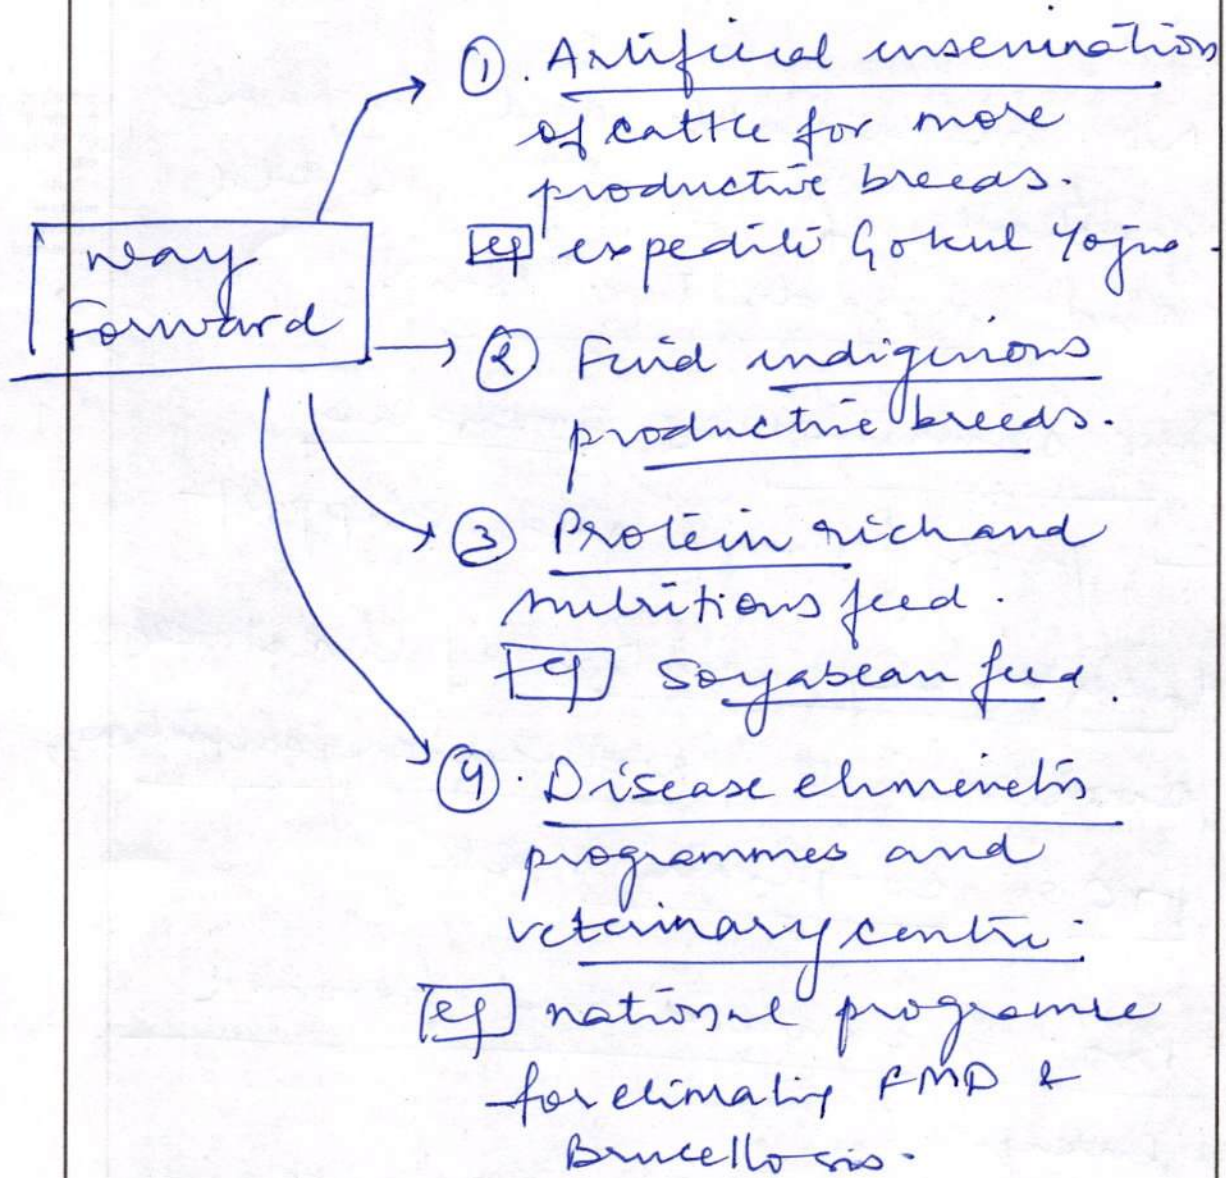 way
Forward
① . Artificial insemination
of cattle for more
productive breeds.
eg expedite Gokul Yojna.
② Find indigenous
productive breeds.
③ Protein rich and
nutritious feed.
eg Soyabean feed.
④ . Disease elimination
programmes and
veterinary centre.
eg national programme
for elimating FMD &
Brucellosis.